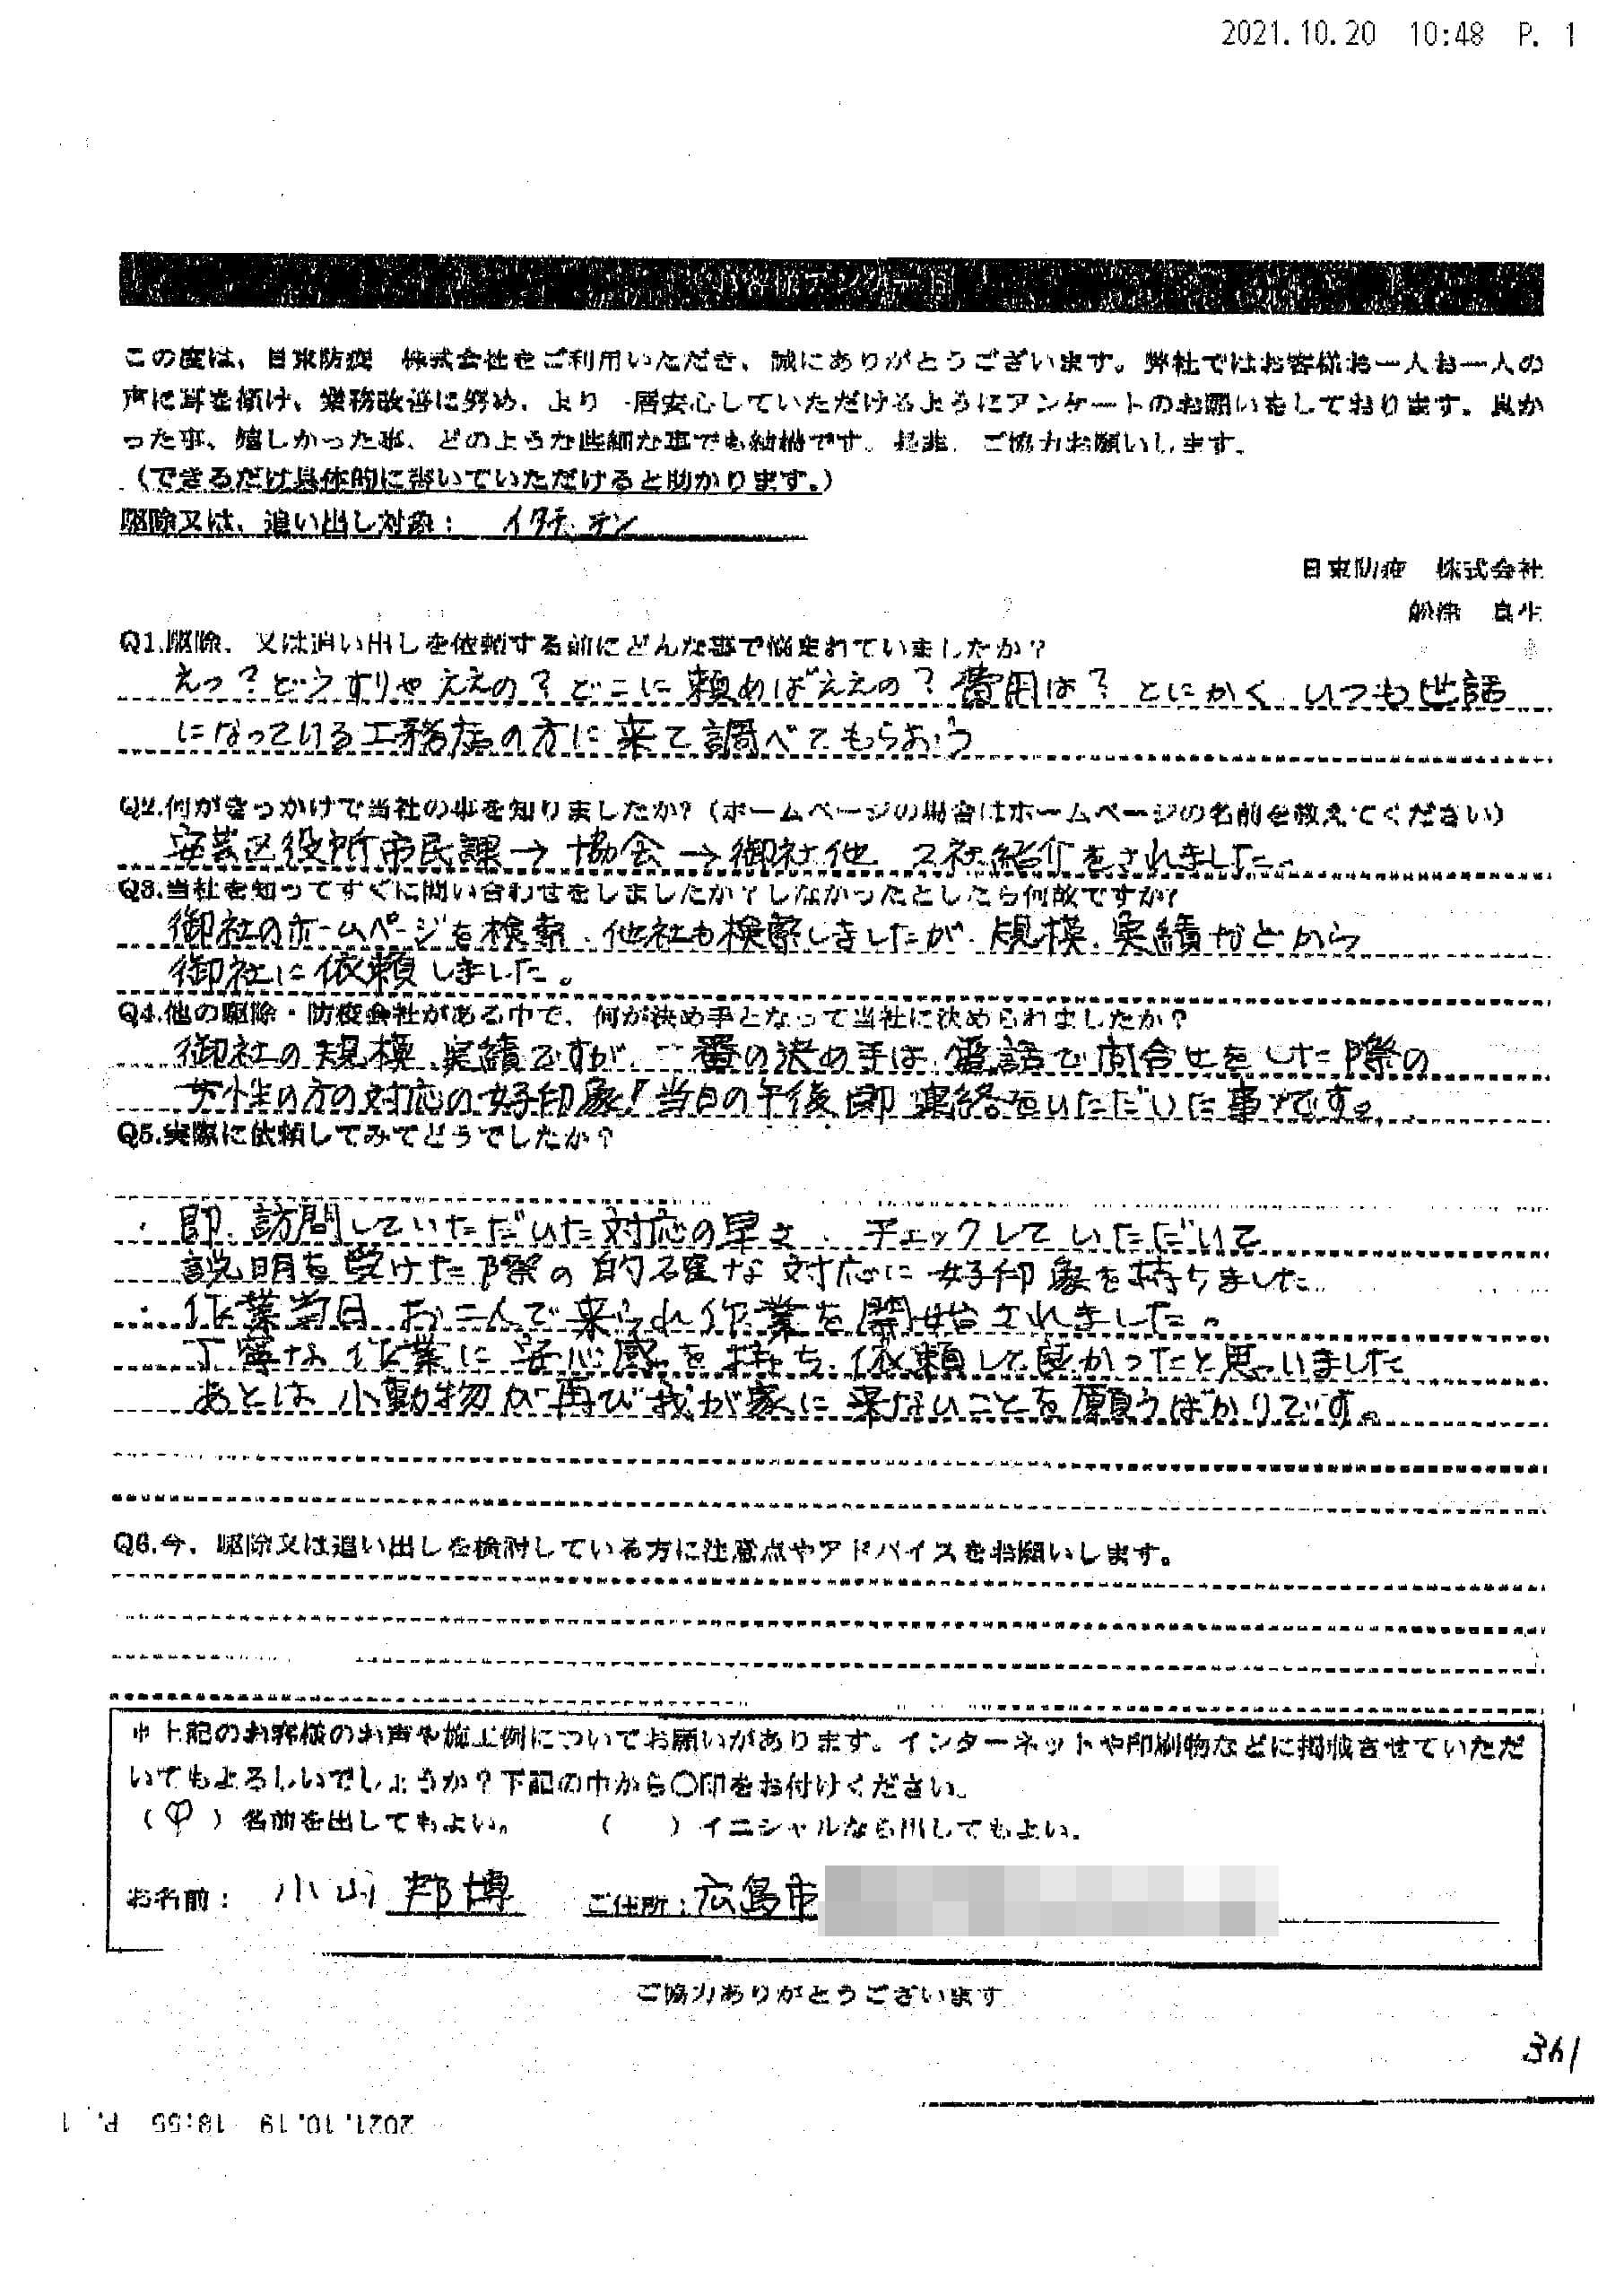 2021.10.20 10:48 P. 1
お客様アンケート
この度は、日東防疫 株式会社をご利用いただき、誠にありがとうございます。弊社ではお客様お一人お一人の
声に耳を傾け、業務改善に努め、より一層安心していただけるようにアンケートのお願いをしております。良か
った事、嬉しかった事、どのような些細な事でも結構です。是非、ご協力お願いします。
(できるだけ具体的に書いていただけると助かります。)
駆除又は、追い出し対象: イタチ、テン
日東防疫 株式会社
Q1.駆除、又は追い出しを依頼する前にどんな事で悩まれていましたか?
えっ?どうすりゃええの?どこに頼めばええの?費用は?とにかく、いつも世話
になっている工務店の方に来て調べてもらおう
Q2.何がきっかけで当社の事を知りましたか?(ホームページの場合はホームページの名前を教えてください)
安芸区役所市民課→協会→御社他 2社紹介をされました。
Q3.当社を知ってすぐに問い合わせをしましたか?しなかったとしたら何故ですか?
御社のホームページを検索、他社も検索しましたが、規模、実績などから
御社に依頼しました。
Q4.他の駆除・防疫会社がある中で、何が決め手となって当社に決められましたか?
御社の規模、実績ですが、一番の決め手は、電話で問合せをした際の
女性の方の対応の好印象!当日の午後、即、連絡をいただいた事です。
Q5.実際に依頼してみてどうでしたか?
・即、訪問していただいた対応の早さ、チェックしていただいて
説明を受けた際の的確な対応に好印象を持ちました。
・作業当日、お二人で来られ作業を開始されました。
丁寧な作業に安心感を持ち、依頼して良かったと思いました
あとは小動物が再び我が家に来ないことを願うばかりです。
Q6.今、駆除又は追い出しを検討している方に注意点やアドバイスをお願いします。
※上記のお客様のお声や施工例についてお願いがあります。インターネットや印刷物などに掲載させていただ
いてもよろしいでしょうか?下記の中から〇印をお付けください。
(〇)名前を出してもよい。 ( )イニシャルなら出してもよい。
お名前: 小山 邦博 ご住所: 広島市
ご協力ありがとうございます
361
2021.10.19 18:55 P. 1